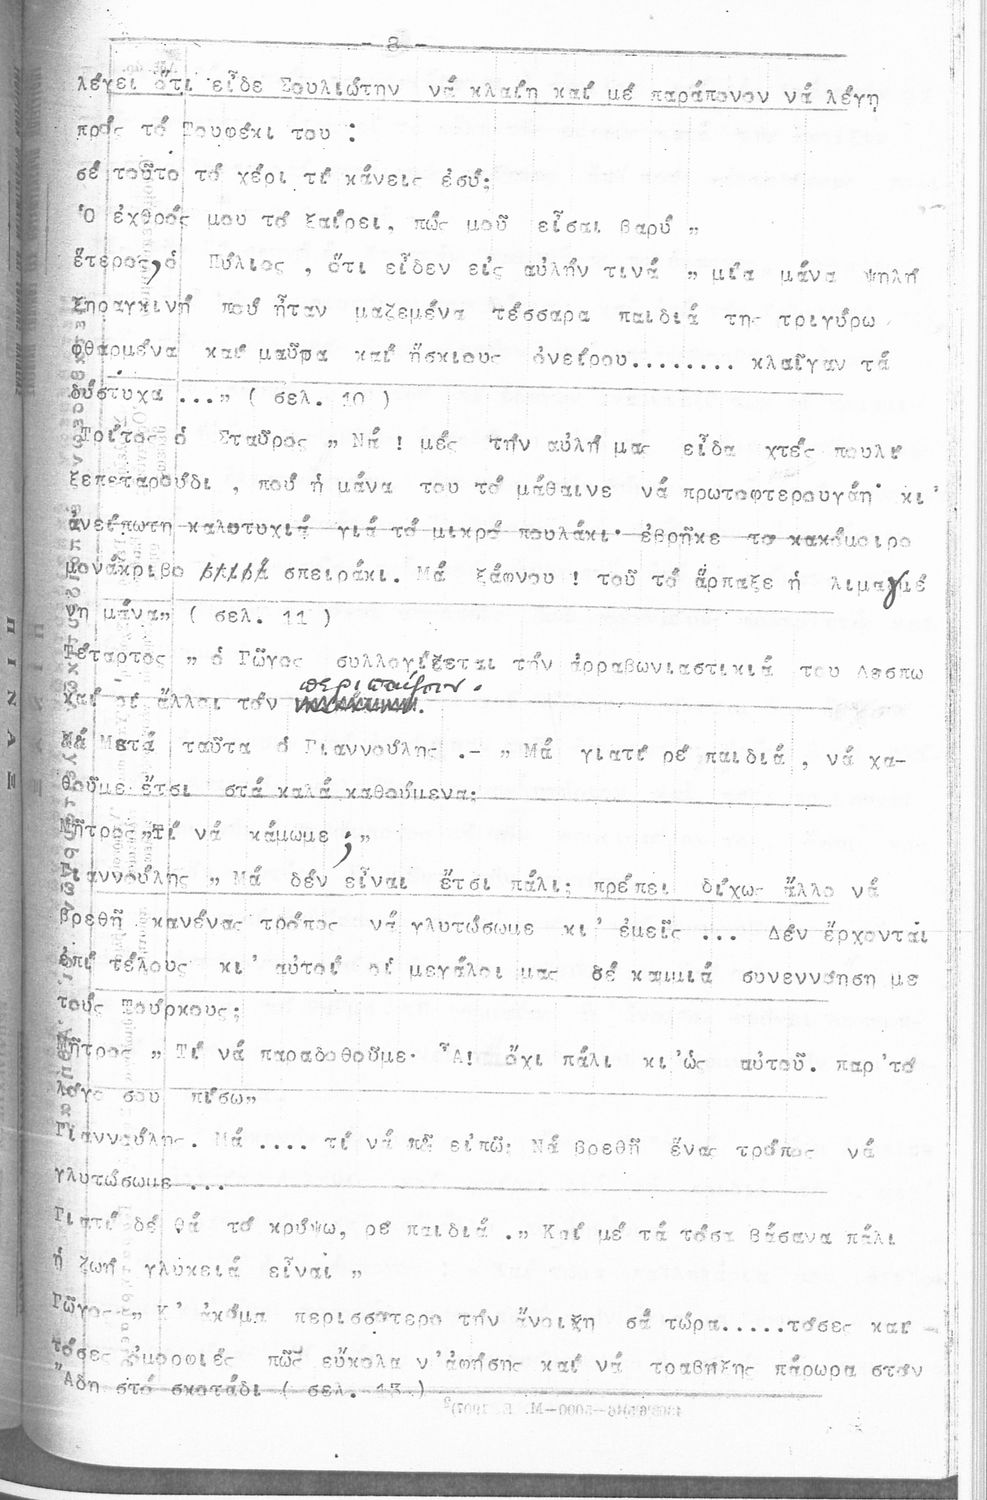 - 8 -
λέγει ὅτι εἶδε Σουλιώτην νά κλαίη καί μέ παράπονον νά λέγη
πρός τό Τουφέκι του :
σέ τοῦτο τό χέρι τί κάνεις ἐσύ;
Ὁ ἐχθρός μου τό ξαίρει, πῶς μοῦ εἶσαι βαρύ „
ἕτερος, ὁ Πύλιος , ὅτι εἶδεν εἰς αὐλήν τινά „ μία μάνα ψηλή
ξηραγκινή πού ἦταν μαζεμένα τέσσαρα παιδιά της τριγύρω
φθαρμένα καί μαῦρα καί ἥσκιους ὀνείρου........ κλαῖγαν τά
δύστυχα ...„ ( σελ. 10 )
Τρίτος ὁ Σταῦρος „ Νά ! μές τήν αὐλή μας εἶδα χτές πουλί
ξεπεταρούδι , πού ἡ μάνα του τό μάθαινε νά πρωτοφτερουγάη· κι'
ἀνείπωτη καλοτυχιά γιά τό μικρό πουλάκι· ἐβρῆκε το κακόμοιρο
μονάκριβο σπειράκι. Μά ξάφνου ! τοῦ τό ἅρπαξε ἡ λιμαγμέ
νη μάνα„ ( σελ. 11 )
Τέταρτος „ ὁ Γῶγος συλλογίζεται τήν ἀρραβωνιαστικιά του Δεσπω
καί οἱ ἄλλοι τόν περιπαίζουν.
Μετά ταῦτα ὁ Γιαννούλης .- „ Μά γιατί ρέ παιδιά , νά χα-
θοῦμε ἔτσι στά καλά καθούμενα;
Μῆτρος „Τί νά κάμωμε ;„
Γιαννούλης „ Μά δέν εἶναι ἔτσι πάλι; πρέπει δίχως ἄλλο νά
βρεθῆ κανένας τρόπος νά γλυτώσωμε κι' ἐμεῖς ... Δέν ἔρχονται
ἐπί τέλους κι' αὐτοί οἱ μεγάλοι μας σέ καμμιά συνεννόηση με
τούς Τούρκους;
Μῆτρος „ Τί νά παραδοθοῦμε· Ἆ! ὄχι πάλι κι'ὡς αὐτοῦ. παρ'τό
λόγο σου πίσω„
Γιαννούλης. Μά .... τί νά πῶ εἰπῶ; Νά βρεθῆ ἕνας τρόπος νά
γλυτώσωμε ...
Γιατί δέ θά τό κρύψω, ρέ παιδιά .„ Καί μέ τά τόσα βάσανα πάλι
ἡ ζωή γλυκειά εἶναι „
Γῶγος „ Κ' ἀκόμα περισσότερο τήν ἄνοιξη σά τώρα.....τόσες καί -
τόσες ὀμορφιές πῶς εὔκολα ν'ἀφήσης καί νά τραβήξης πάρωρα στόν
Ἅδη στό σκοτάδι ( σελ. 13 )